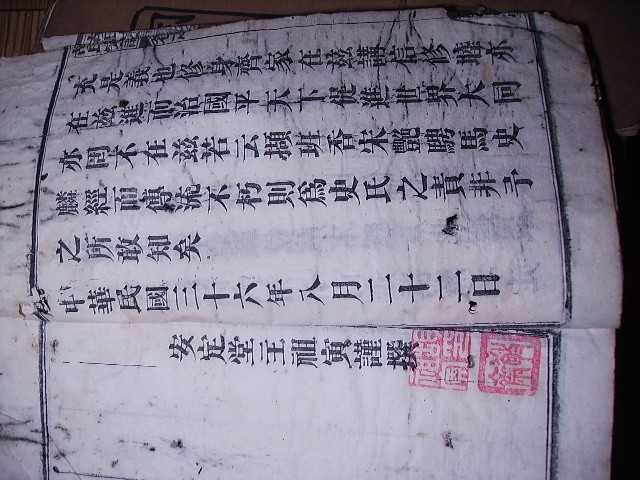 充是義也修身齊家在茲講信修睦亦
在茲進而治國平天下促進世界大同
亦罔不在茲若云擷班香宋艷馬史
麟經而傳流不朽則爲史氏之責非予
之所敢知矣
中華民國三十六年八月二十二日
安定堂主祖寅謹撰